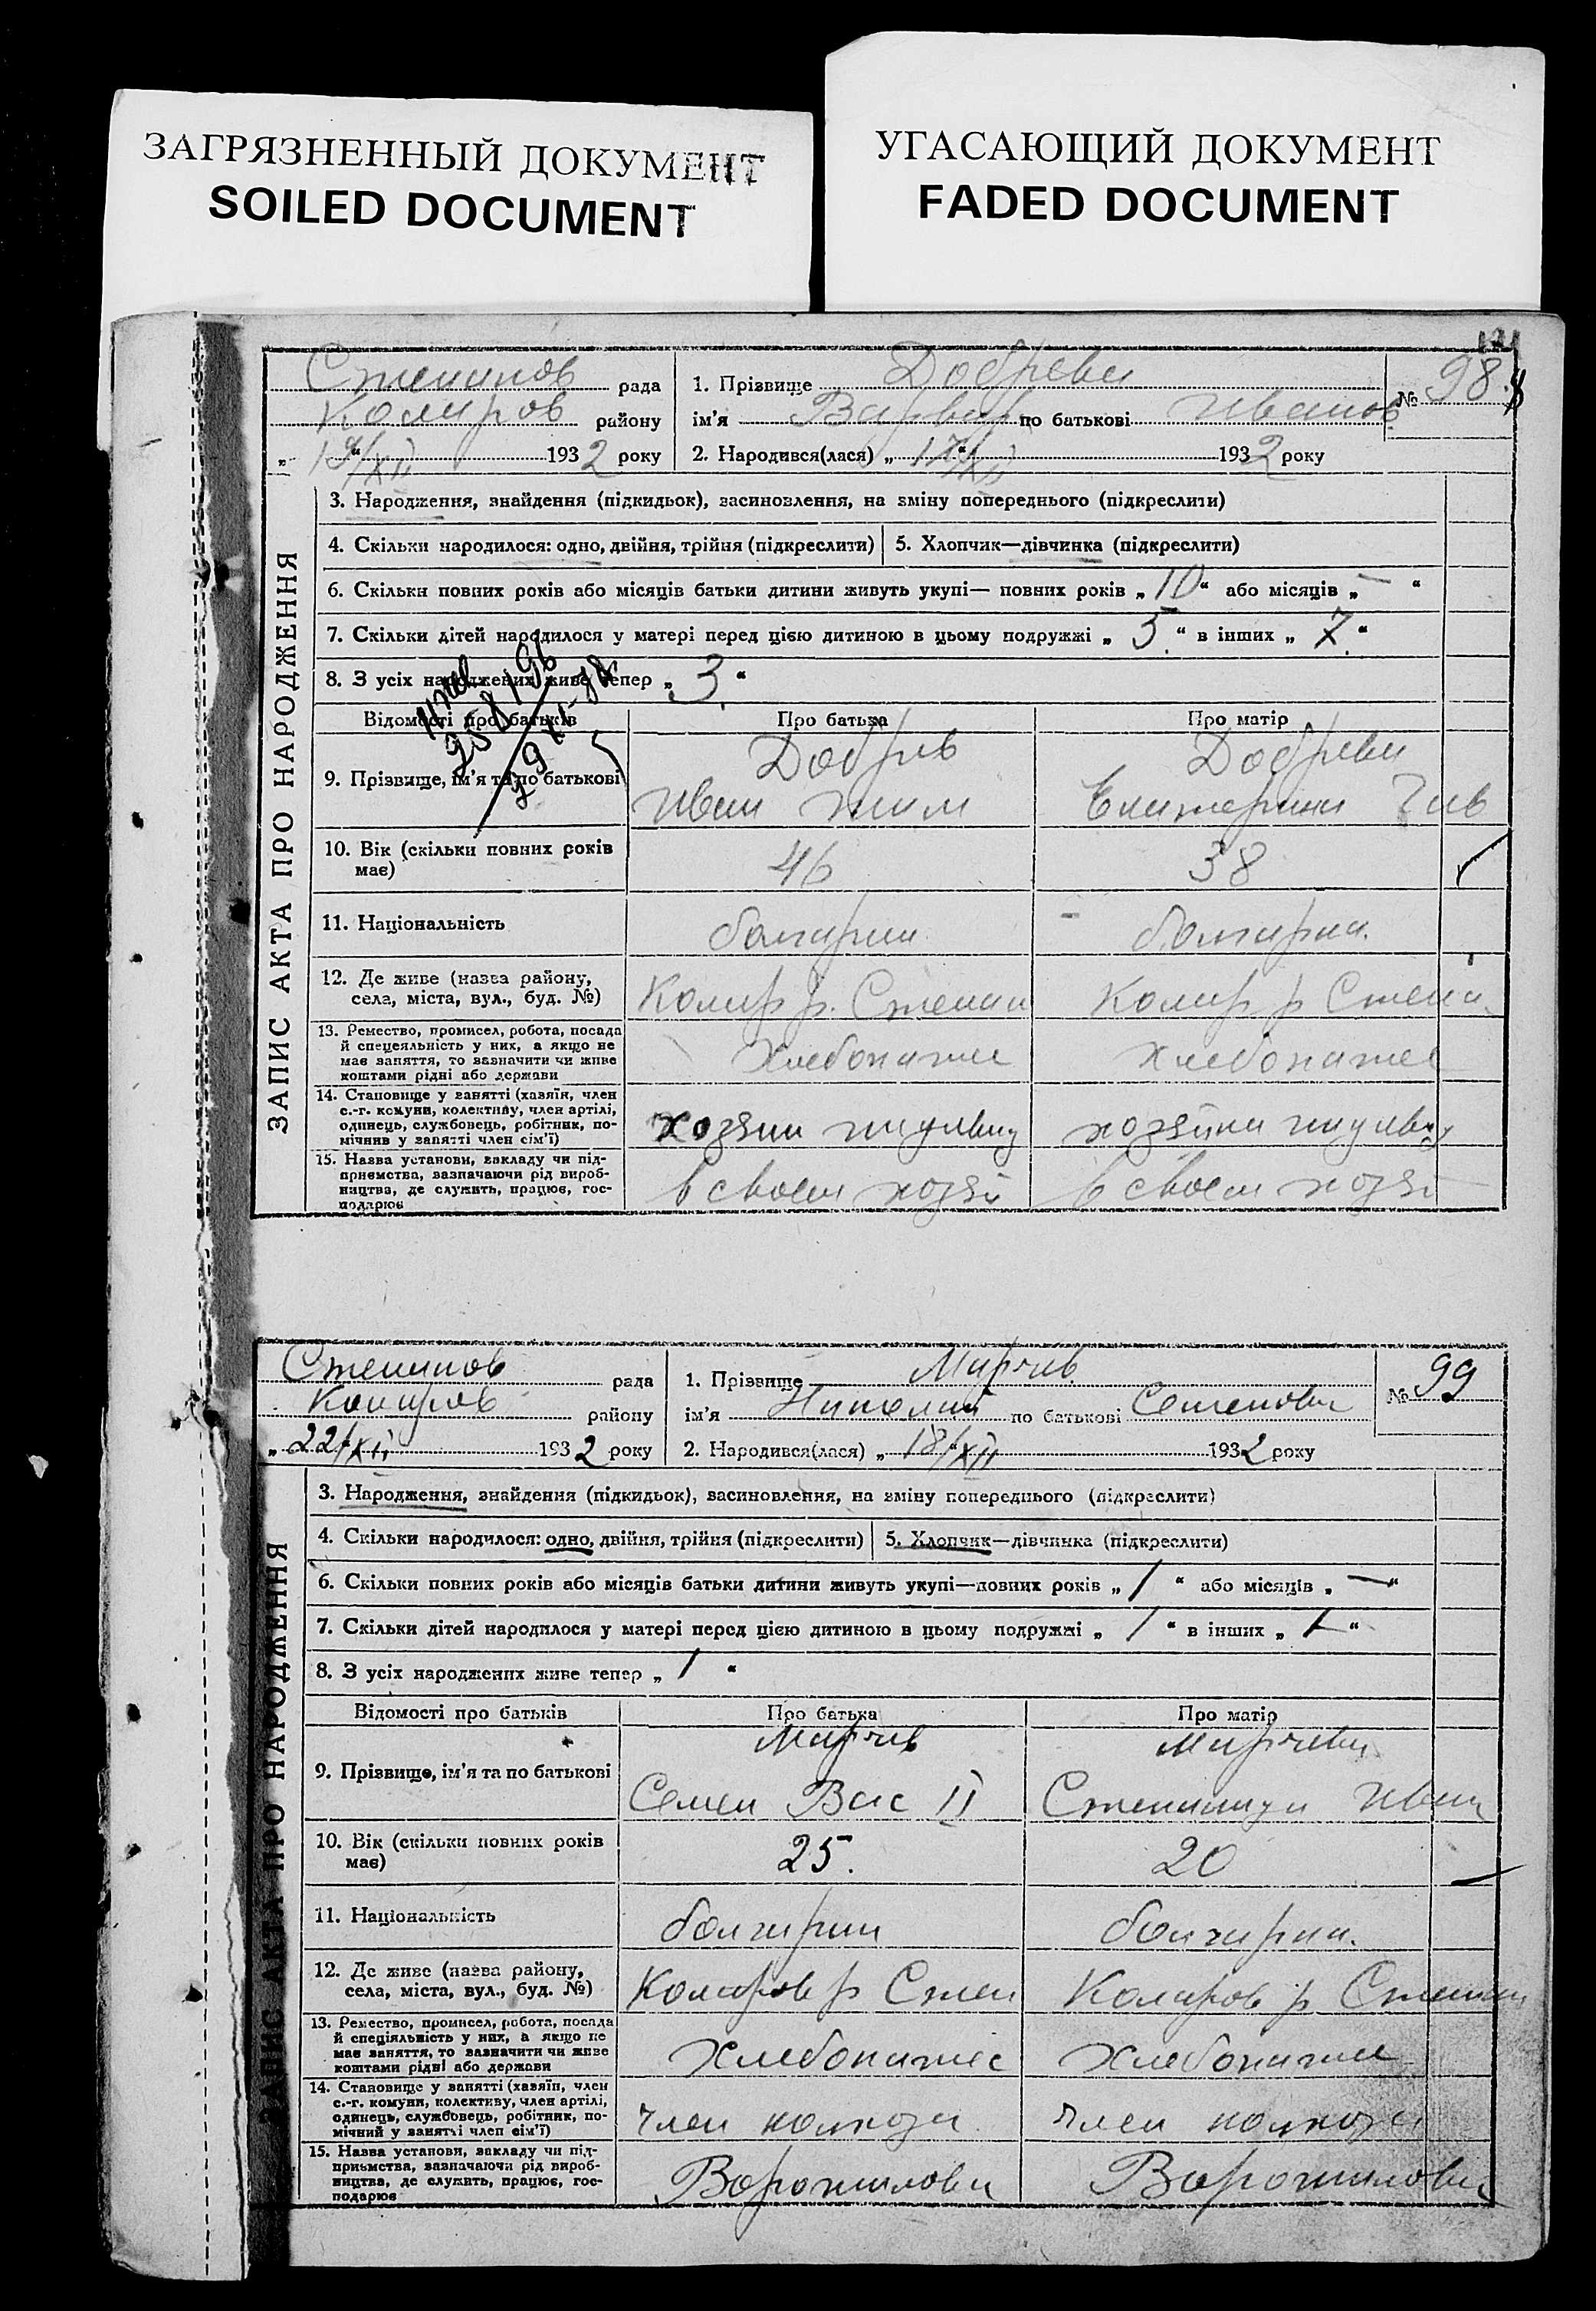 ЗАГРЯЗНЕННЫЙ ДОКУМЕНТ
SOILED DOCUMENT
УГАСАЮЩИЙ ДОКУМЕНТ
FADED DOCUMENT
ЗАПИС АКТА ПРО НАРОДЖЕННЯ
Степанов рада 1. Прізвище Добрева № 98
Коларов району ім'я Варвар по батькові Иванов
„19/XII 1932 року 2. Народився(лася) „17/XII 1932 року
3. Народження, знайдення (підкидьок), засиновлення, на зміну попереднього (підкреслити)
4. Скільки народилося: одно, двійня, трійня (підкреслити) 5. Хлопчик—дівчинка (підкреслити)
6. Скільки повних років або місяців батьки дитини живуть укупі— повних років „10“ або місяців „—“
7. Скільки дітей народилося у матері перед цією дитиною в цьому подружжі „5.“ в інших „7.“
8. З усіх народжених живе тепер „3.“
Відомості про батьків Про батька Про матір
9. Прізвище, ім'я та по батькові Добрев Добрева
Иван Катерина
10. Вік (скільки повних років 46 38
має)
11. Національність болгарин болгарка.
12. Де живе (назва району, Колар р. Степан Колар р Степа
села, міста, вул., буд. №)
13. Ремество, промисел, робота, посада
й спецеяльність у них, а якщо не Хлебопаше хлебопаше
має заняття, то зазначити чи живе
коштами рідні або держави
14. Становище у занятті (хазяїн, член
с.-г. комуни, колективу, член артілі,
одинець, службовець, робітник, по- хозяин хозяйка
мічнив у занятті член сім'ї)
15. Назва установи, закладу чи під-
приємства, зазначаючи рід вироб- в своем хозяй в своем хозяй
ництва, де служить, працює, гос-
подарює
ЗАПИС АКТА ПРО НАРОДЖЕННЯ
Степанов рада 1. Прізвище Марчев № 99
Коларов району ім'я Николай по батькові Семенович
„22/XII 1932 року 2. Народився(лася) „18/XII 1932 року
3. Народження, знайдення (підкидьок), засиновлення, на зміну попереднього (підкреслити)
4. Скільки народилося: одно, двійня, трійня (підкреслити) 5. Хлопчик—дівчинка (підкреслити)
6. Скільки повних років або місяців батьки дитини живуть укупі—повних років „1“ або місяців „—“
7. Скільки дітей народилося у матері перед цією дитиною в цьому подружжі „1“ в інших „“
8. З усіх народжених живе тепер „1“
Відомості про батьків Про батька Про матір
9. Прізвище, ім'я та по батькові Марчев Марчева
Семен Вас II Степанида Иван
10. Вік (скільки повних років 25. 20
має)
11. Національність болгарин болгарка.
12. Де живе (назва району, Коларов р Степ Коларов р Степан
села, міста, вул., буд. №)
13. Ремество, промисел, робота, посада
й спеціяльність у них, а якщо не Хлебопашес Хлебопаше
має заняття, то зазначити чи живе
коштами рідні або держави
14. Становище у занятті (хазяїн, член
с.-г. комуни, колективу, член артілі,
одинець, службовець, робітник, по- член колхоза член колхоза
мічний у занятті член сім'ї)
15. Назва установи, закладу чи під-
приємства, зазначаючи рід вироб- Ворошилова Ворошилова
ництва, де служить, працює, гос-
подарює